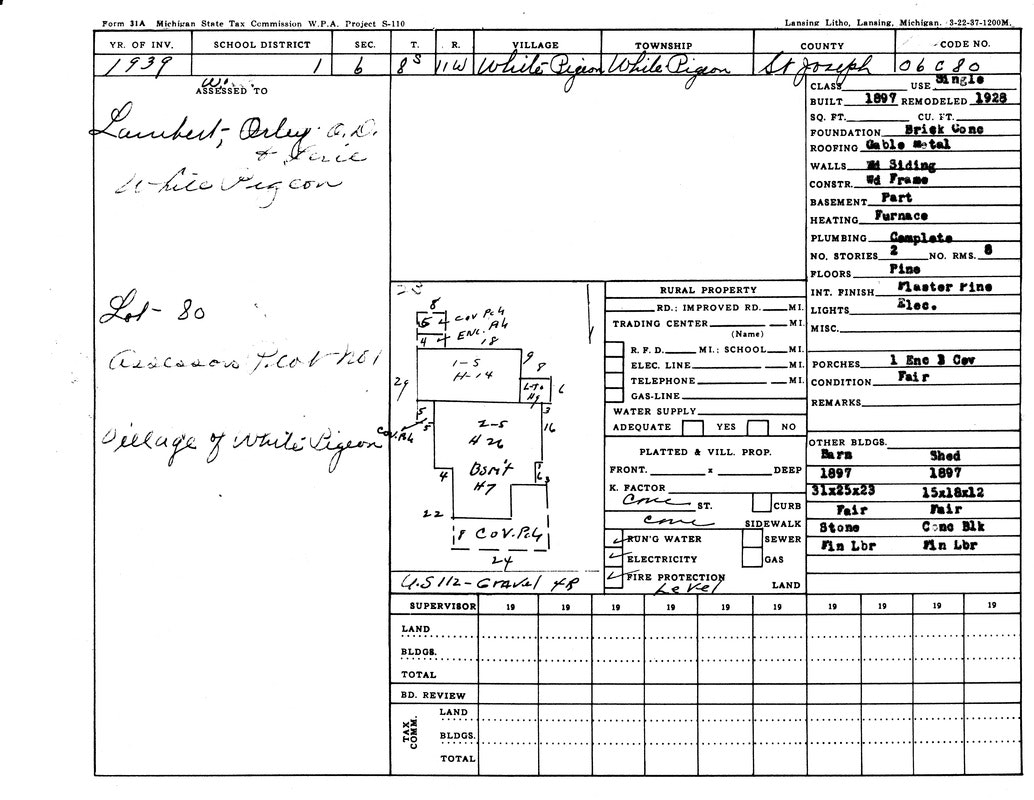 Form 31A Michigan State Tax Commission W.P.A. Project S-110 Lansing Litho, Lansing, Michigan. 3-22-37-1200M.
YR. OF INV. SCHOOL DISTRICT SEC. T. R. VILLAGE TOWNSHIP COUNTY CODE NO.
1939 1 6 8S 11W White Pigeon White Pigeon St Joseph 06 C 80
ASSESSED TO
Lambert, Orley O.D.
&
White Pigeon
Lot - 80
Assessors Plat No 1
Village of White Pigeon
CLASS USE Single
BUILT 1897 REMODELED 1928
SQ. FT. CU. FT.
FOUNDATION Brick Conc
ROOFING Gable Metal
WALLS Wd Siding
CONSTR. Wd Frame
BASEMENT Part
HEATING Furnace
PLUMBING Complete
NO. STORIES 2 NO. RMS. 8
FLOORS Pine
INT. FINISH Plaster Pine
LIGHTS Elec.
MISC.
PORCHES 1 Enc 3 Cov
CONDITION Fair
REMARKS
OTHER BLDGS.
Barn Shed
1897 1897
31x25x23 15x18x12
Fair Fair
Stone Conc Blk
Fin Lbr Fin Lbr
8
5 Cov Pch
4 Enc. Ph
18
1-S
H-14
9
8
L-To
H9
6
29
5
5
Cov. Pch
2-S
H 26
3
16
Bsm't
H7
4
3
6
3
22
8 Cov. Pch
24
U.S 112 - Gravel 4R
RURAL PROPERTY
RD.: IMPROVED RD. MI.
TRADING CENTER MI.
(Name)
R. F. D. MI.: SCHOOL MI.
ELEC. LINE MI.
TELEPHONE MI.
GAS-LINE
WATER SUPPLY
ADEQUATE YES NO
PLATTED & VILL. PROP.
FRONT. x DEEP
K. FACTOR
Conc ST. CURB
Conc SIDEWALK
RUN'G WATER SEWER
ELECTRICITY GAS
FIRE PROTECTION
Level LAND
SUPERVISOR 19 19 19 19 19 19 19 19 19 19
LAND
BLDGS.
TOTAL
BD. REVIEW
TAX COMM.
LAND
BLDGS.
TOTAL